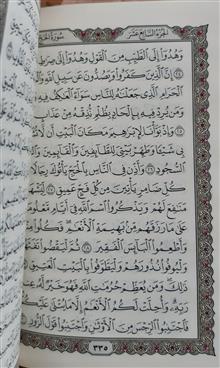 الجزء السابع عشر
سورة الحج
وَهُدُوٓا۟ إِلَى ٱلطَّيِّبِ مِنَ ٱلْقَوْلِ وَهُدُوٓا۟ إِلَىٰ صِرَٰطِ
إِنَّ ٱلَّذِينَ كَفَرُوا۟ وَيَصُدُّونَ عَن سَبِيلِ ٱللَّهِ
ٱلْحَرَامِ ٱلَّذِى جَعَلْنَٰهُ لِلنَّاسِ سَوَآءً ٱلْعَٰكِفُ فِيهِ
وَمَن يُرِدْ فِيهِ بِإِلْحَادٍۭ بِظُلْمٍ نُّذِقْهُ مِنْ عَذَابٍ
وَإِذْ بَوَّأْنَا لِإِبْرَٰهِيمَ مَكَانَ ٱلْبَيْتِ أَن لَّا
بِى شَيْـًٔا وَطَهِّرْ بَيْتِىَ لِلطَّآئِفِينَ وَٱلْقَآئِمِينَ
ٱلسُّجُودِ ٢٦ وَأَذِّن فِى ٱلنَّاسِ بِٱلْحَجِّ يَأْتُوكَ رِجَالًا
كُلِّ ضَامِرٍ يَأْتِينَ مِن كُلِّ فَجٍّ عَمِيقٍ
مَنَٰفِعَ لَهُمْ وَيَذْكُرُوا۟ ٱسْمَ ٱللَّهِ فِىٓ أَيَّامٍ مَّعْلُومَٰتٍ
عَلَىٰ مَا رَزَقَهُم مِّنۢ بَهِيمَةِ ٱلْأَنْعَٰمِ فَكُلُوا۟ مِنْهَا
وَأَطْعِمُوا۟ ٱلْبَآئِسَ ٱلْفَقِيرَ ٢٨ ثُمَّ لْيَقْضُوا۟ تَفَثَهُمْ
وَلْيُوفُوا۟ نُذُورَهُمْ وَلْيَطَّوَّفُوا۟ بِٱلْبَيْتِ ٱلْعَتِيقِ
ذَٰلِكَ وَمَن يُعَظِّمْ حُرُمَٰتِ ٱللَّهِ فَهُوَ خَيْرٌ لَّهُۥ عِندَ
رَبِّهِۦ وَأُحِلَّتْ لَكُمُ ٱلْأَنْعَٰمُ إِلَّا مَا يُتْلَىٰ عَلَيْكُمْ
فَٱجْتَنِبُوا۟ ٱلرِّجْسَ مِنَ ٱلْأَوْثَٰنِ وَٱجْتَنِبُوا۟ قَوْلَ ٱلزُّورِ
٣٣٥